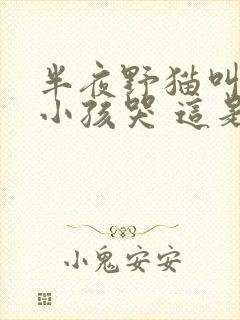 半夜野猫叫
小孩哭 這是
小鬼安安